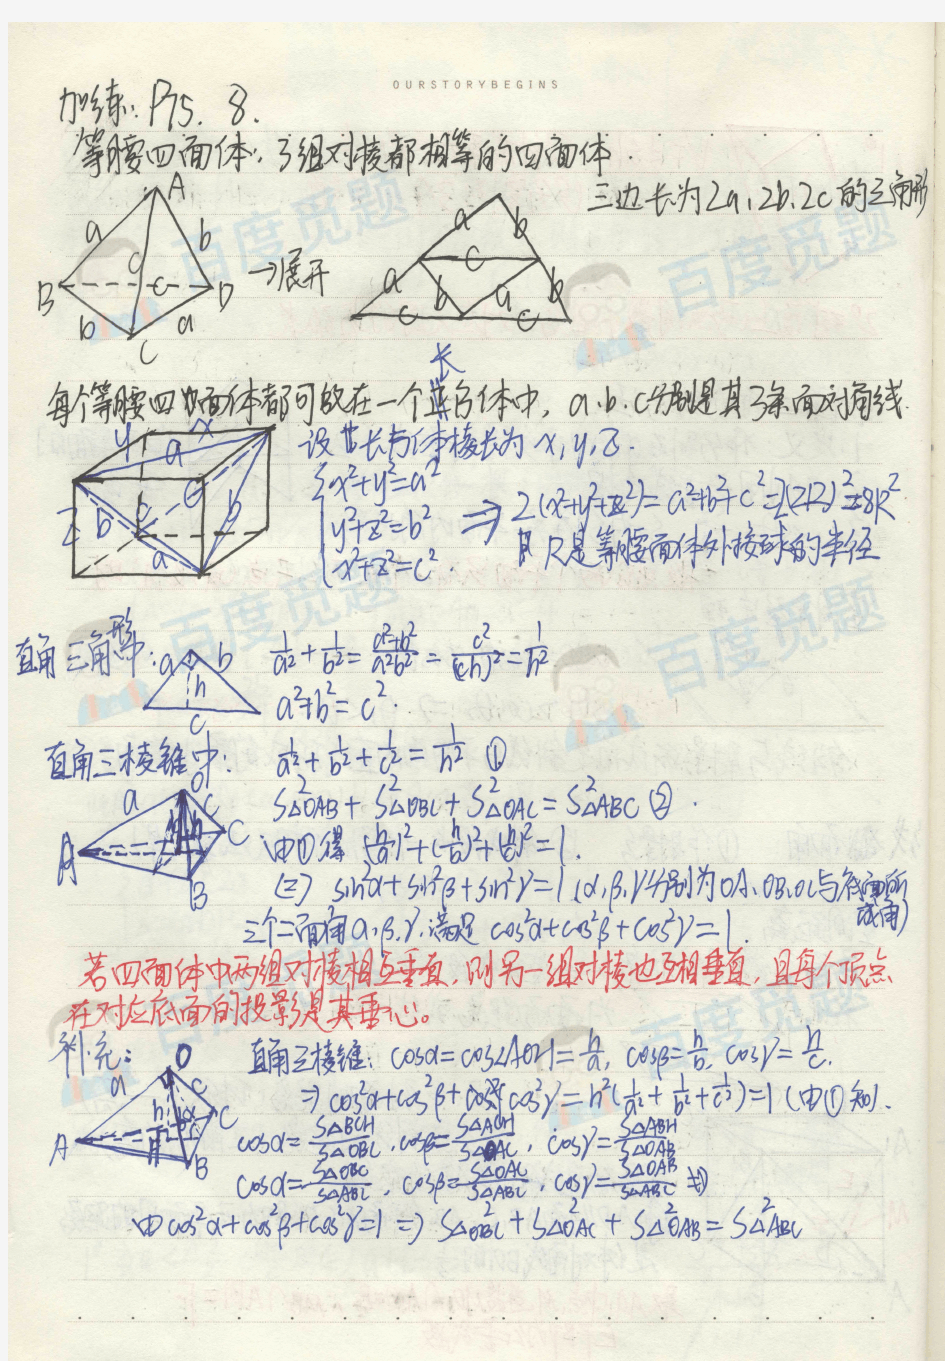 OURSTORYBEGINS
加练: P75. 8.
等腰四面体: 3组对棱都相等的四面体.
三边长为2a,2b,2c的三角形
A
a
b
c
c
B
D
b
a
C
→展开
a
b
c
a
b
a
b
c
c
每个等腰四面体都可放在一个长方体中, a.b.c分别是其3条面对角线.
设长方体棱长为x,y,z.
y
x
a
z
b
c
c
b
a
x²+y²=a²
y²+z²=b²
x²+z²=c².
⇒ 2(x²+y²+z²)=a²+b²+c²=2(2R)²=8R²
且R是等腰面体外接球的半径
直角三角形中:
a
b
h
c
1/a²+1/b²=(a²+b²)/(a²b²)=c²/(ch)²=1/h²
a²+b²=c².
直角三棱锥中: 1/a²+1/b²+1/c²=1/h² ①
S²△OAB+S²△OBC+S²△OAC=S²△ABC ②.
O
a
c
h
C
A
B
由①得 (h/a)²+(h/b)²+(h/c)²=1.
⇔ sin²α+sin²β+sin²γ=1 (α,β,γ分别为OA、OB、OC与底面所成角)
三个二面角α,β,γ,满足 cos²α+cos²β+cos²γ=1.
若四面体中两组对棱相互垂直,则另一组对棱也互相垂直,且每个顶点
在对应底面的投影是其垂心。
补充:
O
a
c
h
α
C
A
H
B
直角三棱锥: cosα=cos∠AOH=h/a, cosβ=h/b, cosγ=h/c.
⇒ cos²α+cos²β+cos²γ=h²(1/a²+1/b²+1/c²)=1 (由①知).
cosα=S△BCH/S△OBC, cosβ=S△ACH/S△OAC, cosγ=S△ABH/S△OAB
cosα=S△OBC/S△ABC, cosβ=S△OAC/S△ABC, cosγ=S△OAB/S△ABC
由cos²α+cos²β+cos²γ=1 ⇒ S²△OBC+S²△OAC+S²△OAB=S²△ABC
百度觅题
百度觅题
百度觅题
百度觅题